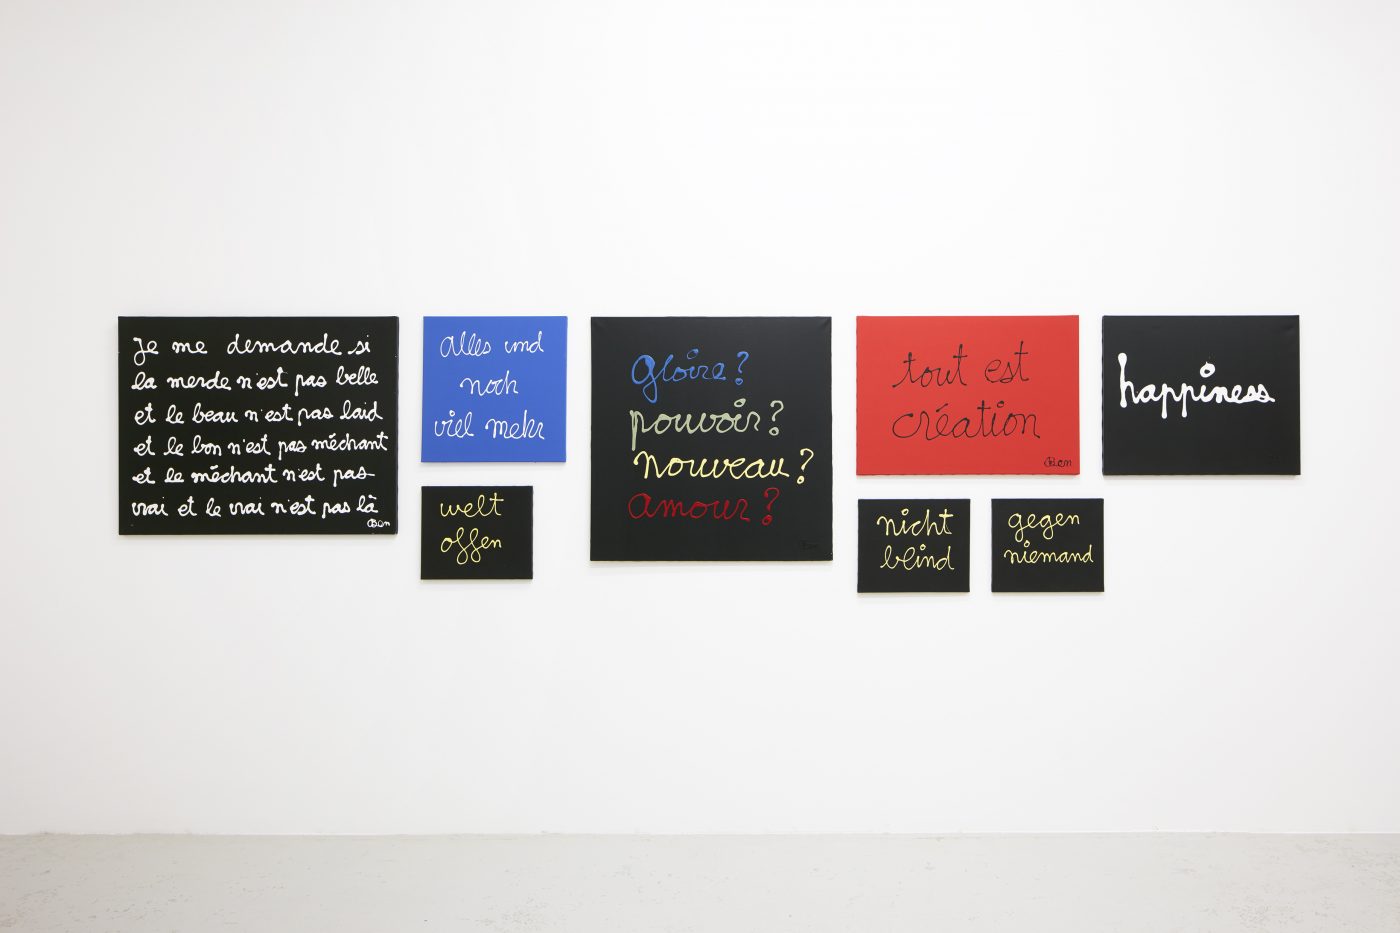 je me demande si
la merde n'est pas belle
et le beau n'est pas laid
et le bon n'est pas méchant
et le méchant n'est pas
vrai et le vrai n'est pas là
Ben
alles und
noch
viel mehr
welt
offen
gloire?
pouvoir?
nouveau?
amour?
Ben
tout est
création
Ben
nicht
blind
gegen
niemand
happiness